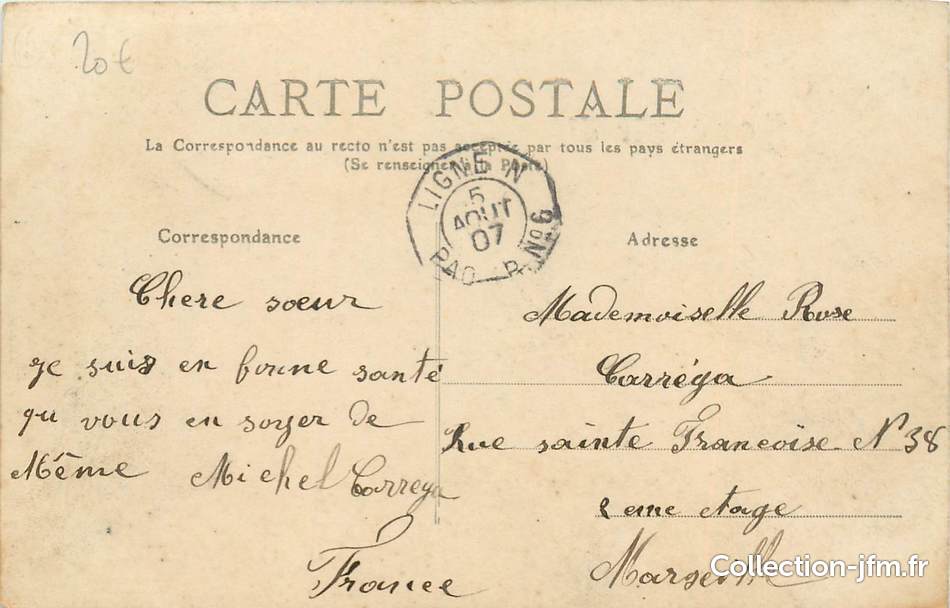 20€
CARTE POSTALE
La Correspondance au recto n'est pas acceptée par tous les pays étrangers
(Se renseigner à la Poste)
LIGNE N
PAQ. FR. Nº 6
5
AOUT
07
Correspondance
Chere sœur
je suis en bonne santé
qu vous en soyer de
Même Michel Carrega
France
Adresse
Mademoiselle Rose
Carréga
Rue sainte Francoise N 38
2 eme etage
Marseille
Collection-jfm.fr